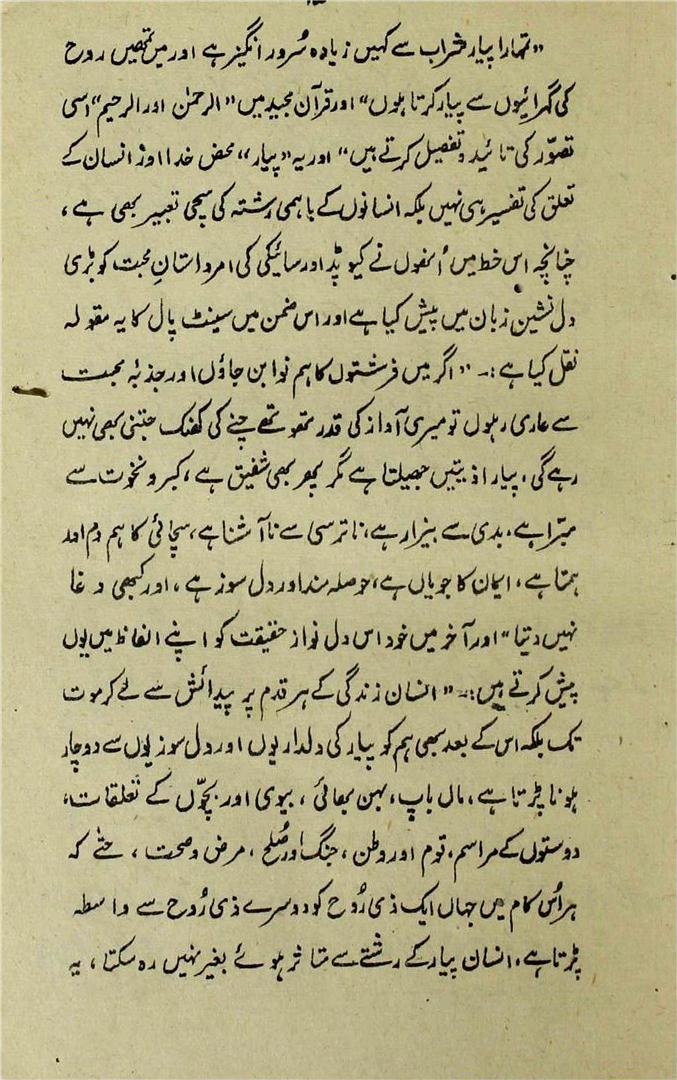 ”تمہارا پیار شراب سے کہیں زیادہ سُرور انگیز ہے اور میں تمھیں روح
کی گہرائیوں سے پیار کرتا ہوں“ اور قرآن مجید میں ”الرحمٰن اور الرحیم“ اسی
تصوّر کی تائید و تفصیل کرتے ہیں“ اور یہ ”پیار“ محض خدا اور انسان کے
تعلق کی تفسیر ہی نہیں بلکہ انسانوں کے باہمی رشتہ کی سچی تعبیر بھی ہے،
چنانچہ اس خط میں اُنھوں نے کیوپڈ اور سائیکی کی امر داستانِ محبت کو بڑی
دل نشین زبان میں پیش کیا ہے اور اس ضمن میں سینٹ پال کا یہ مقولہ
نقل کیا ہے :۔ ”اگر میں فرشتوں کا ہم نوا بن جاؤں اور جذبۂ محبت
سے عاری رہوں تو میری آواز کی قدر تھوتھے چنے کی کھنک جتنی بھی نہیں
رہے گی۔ پیار اذیتیں جھیلتا ہے مگر پھر بھی شفیق ہے، کبر و نخوت سے
مبرّا ہے۔ بدی سے بیزار ہے، ناترسی سے ناآشنا ہے، سچائی کا ہم دم اور
ہمتا ہے، ایمان کا جویاں ہے، حوصلہ مند اور دل سوز ہے، اور کبھی دغا
نہیں دیتا“ اور آخر میں خود اس دل نواز حقیقت کو اپنے الفاظ میں یوں
پیش کرتے ہیں :۔ ”انسان زندگی کے ہر قدم پر پیدائش سے لے کر موت
تک بلکہ اس کے بعد بھی ہم کو پیار کی دلداریوں اور دل سوزیوں سے دوچار
ہونا پڑتا ہے، ماں باپ، بہن بھائی، بیوی اور بچّوں کے تعلقات،
دوستوں کے مراسم، قوم اور وطن، جنگ اور صُلح، مرض و صحت، حتٰے کہ
ہر اُس کام میں جہاں ایک ذی رُوح کو دوسرے ذی رُوح سے واسطہ
پڑتا ہے۔ انسان پیار کے رشتے سے متاثر ہوئے بغیر نہیں رہ سکتا، یہ